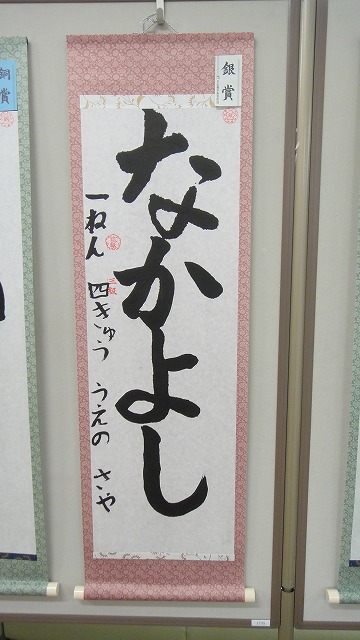 銀賞
なかよし
一ねん 四きゅう うえの さや
銅賞